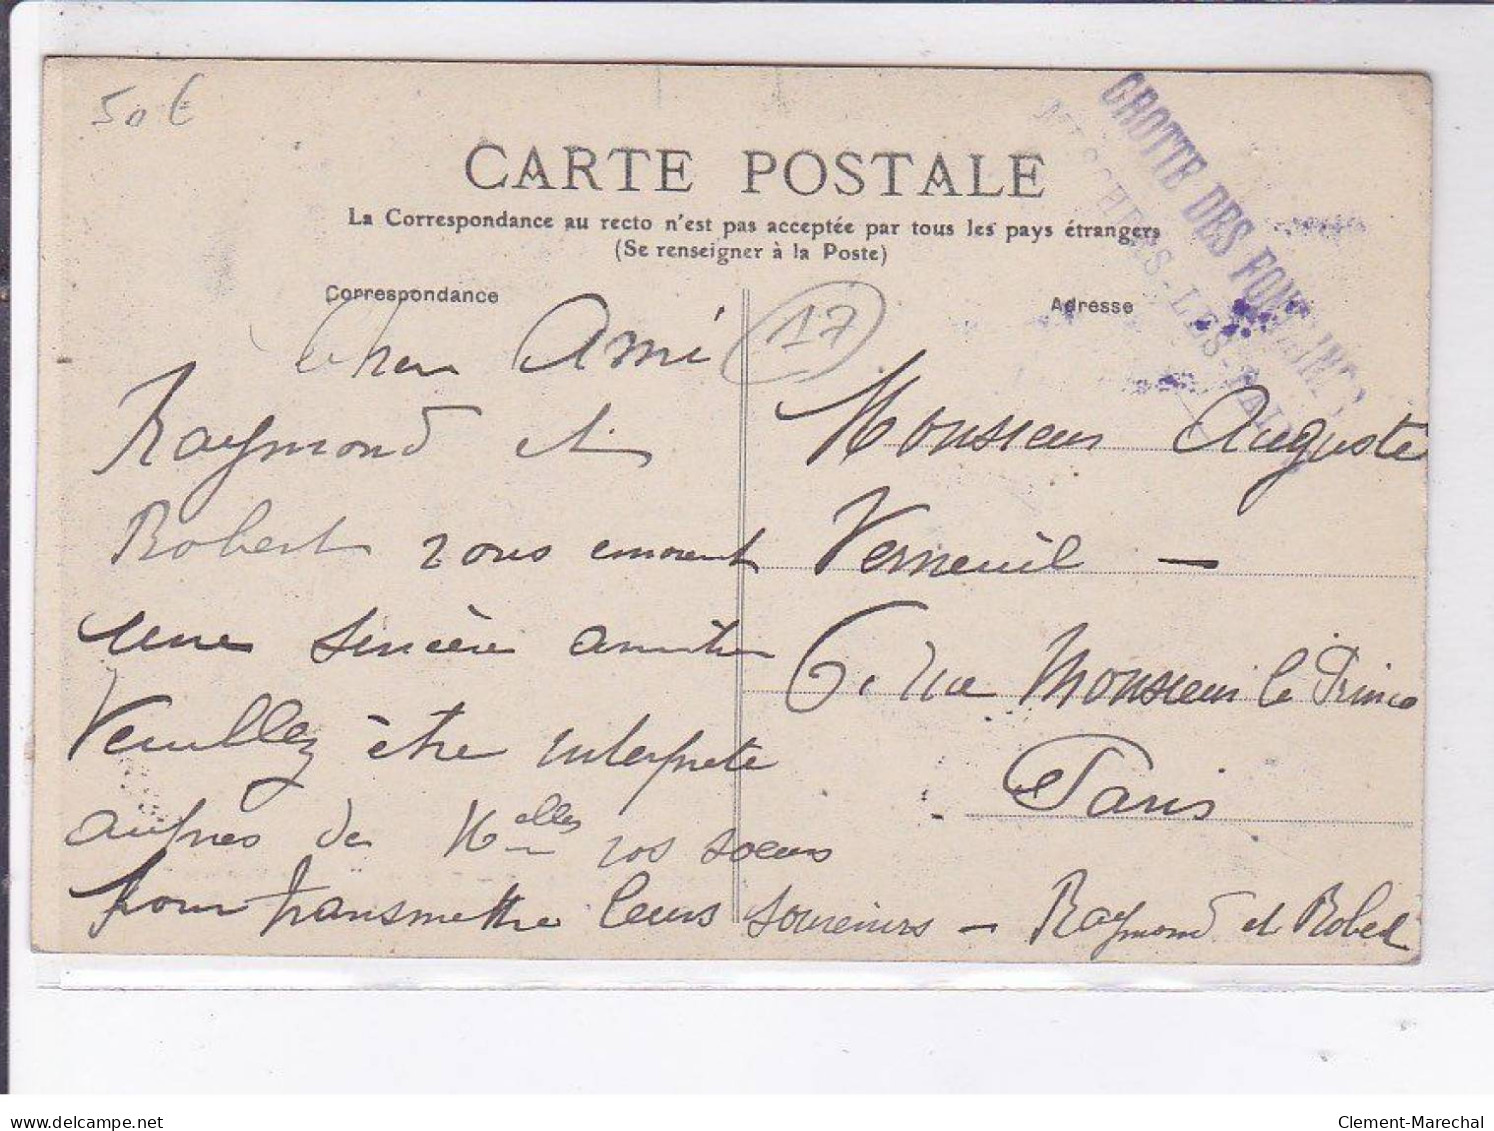 50€
GROTTE DES FONTAINES
CARTE POSTALE
La Correspondance au recto n'est pas acceptée par tous les pays étrangers
(Se renseigner à la Poste)
Correspondance
Adresse
17
Cher Ami
Raymond et
Robert vous envoient
une sincère amitié
Veuillez être interprète
auprès de Melles vos soeurs
pour transmettre leurs souvenirs — Raymond et Robert
Monsieur Auguste
Verneuil —
6, rue Monsieur le Prince
Paris
delcampe.net
Clement-Marechal